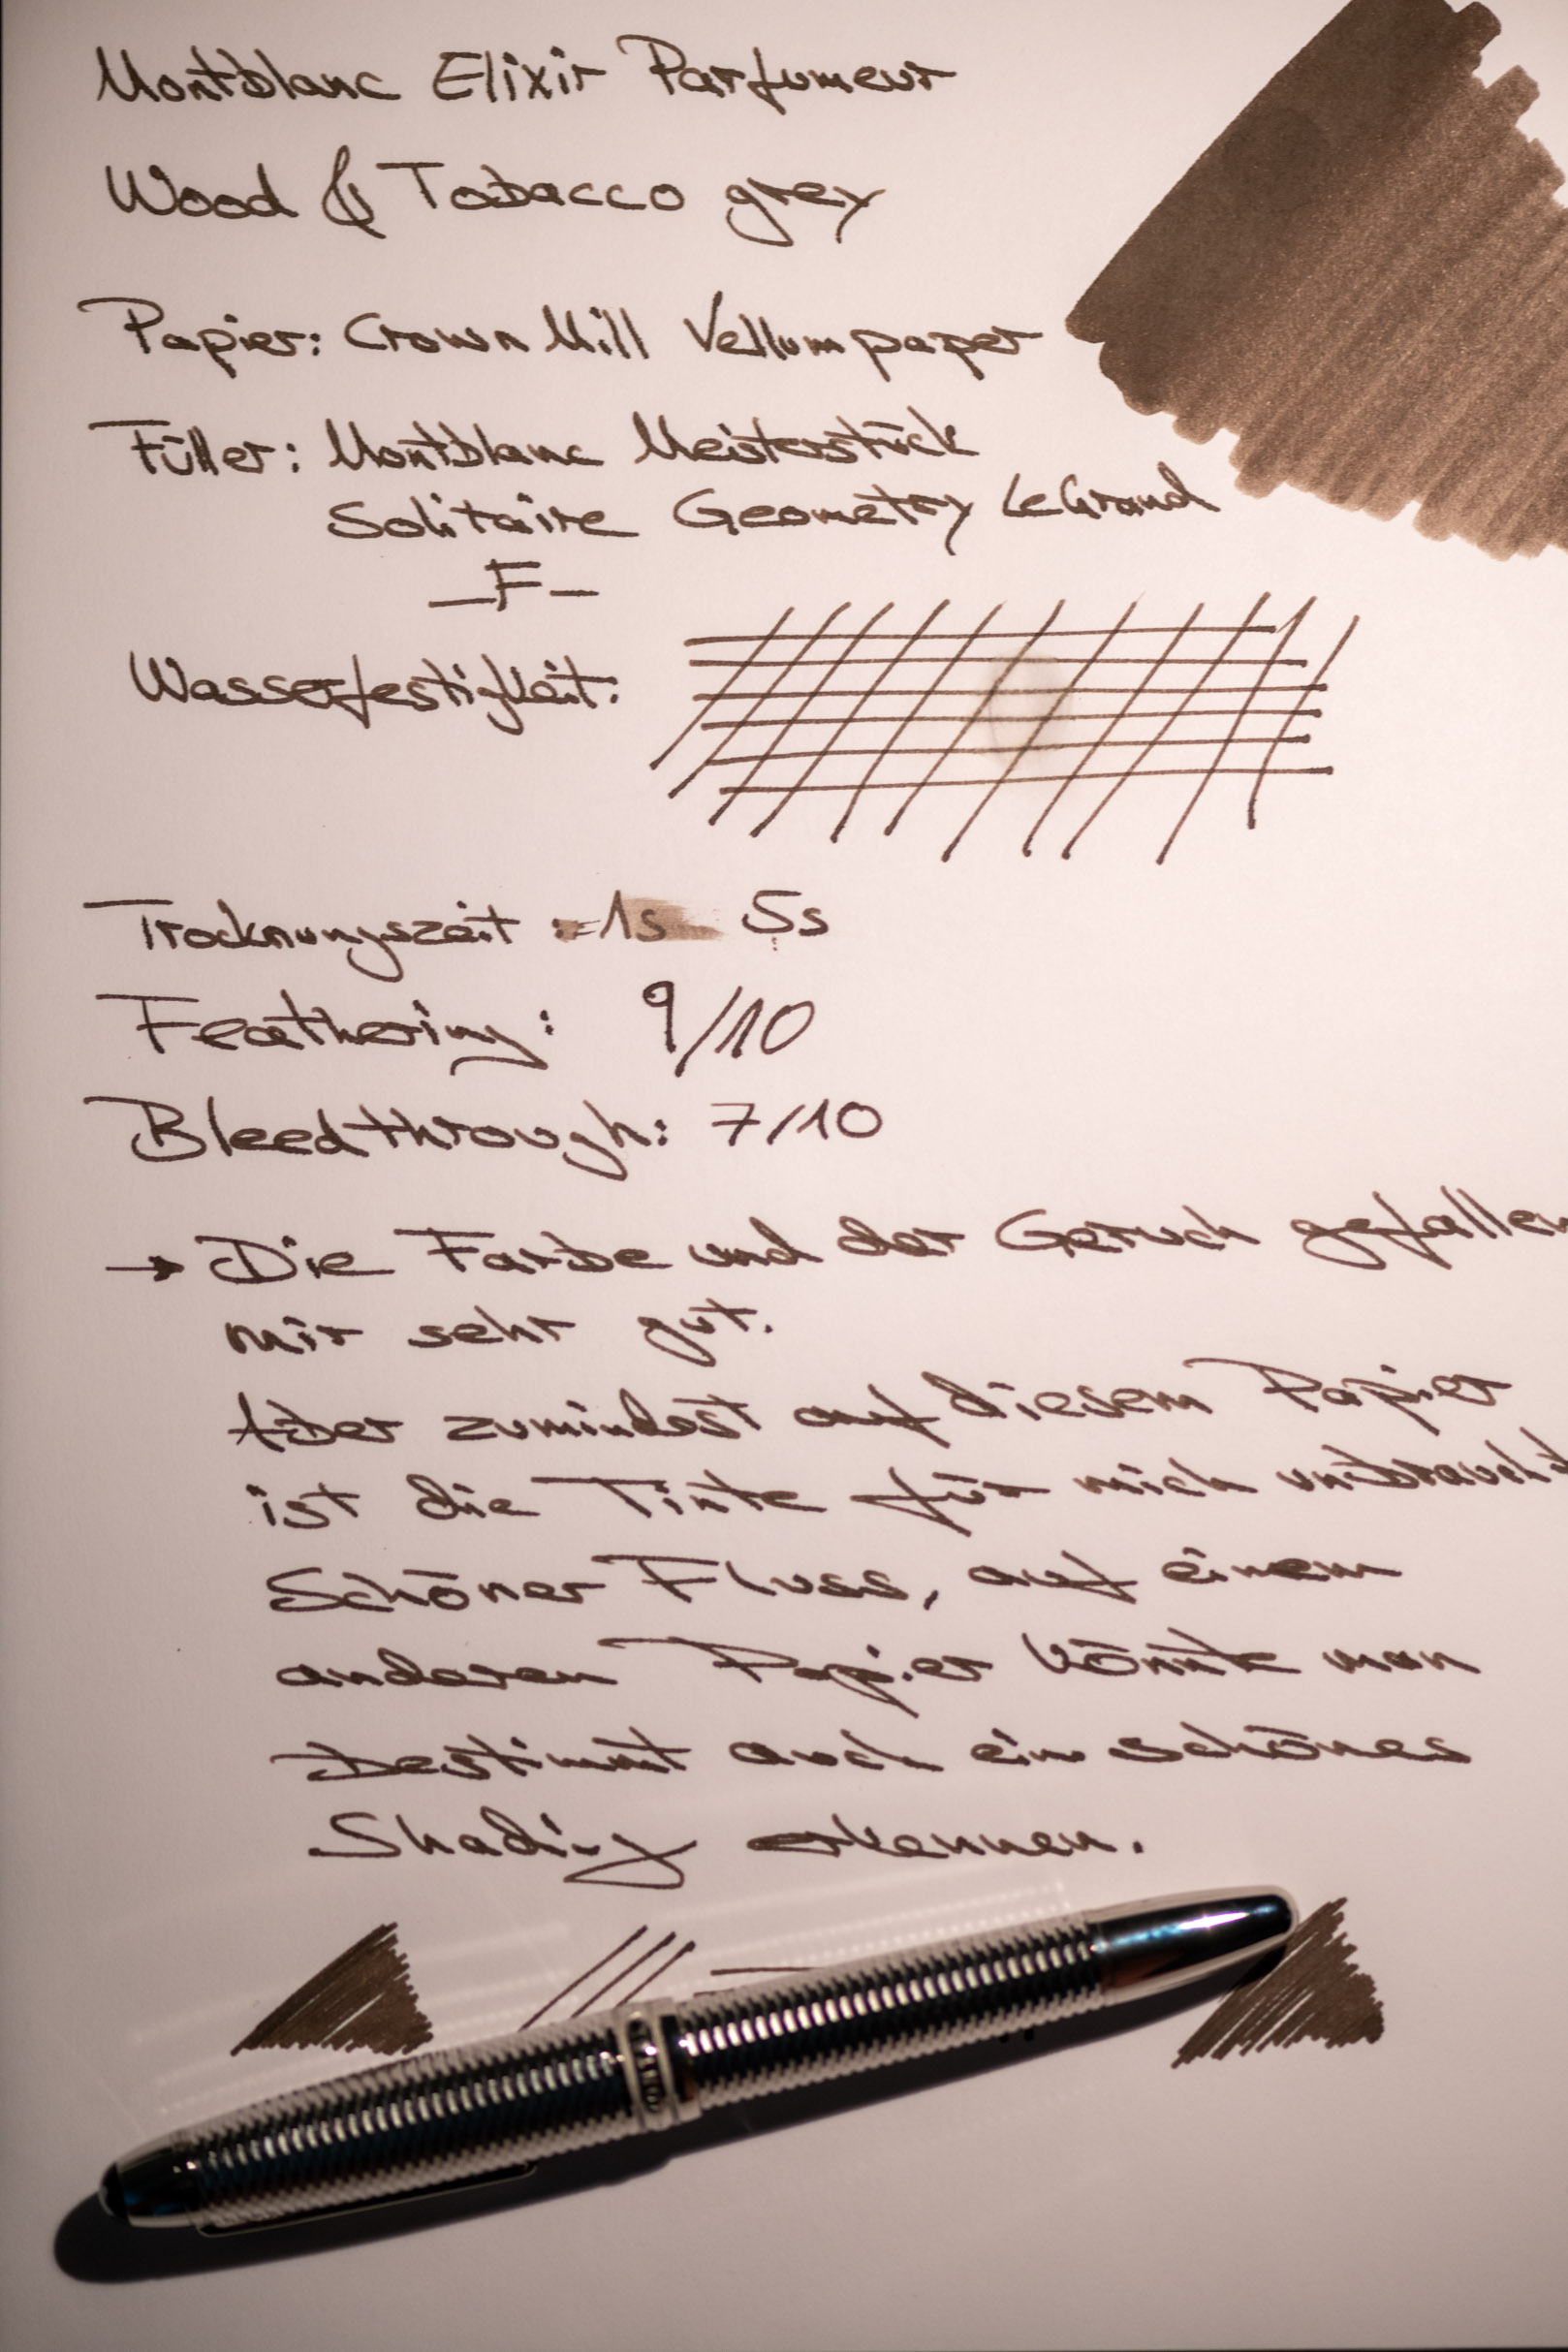 Montblanc Elixir Parfumeur
Wood & Tobacco grey
Papier: Crown Mill Vellum paper
Füller: Montblanc Meisterstück
Solitaire Geometry LeGrand
–F–
Wasserfestigkeit:
Trocknungszeit: 1s 5s
Feathering: 9/10
Bleedthrough: 7/10
→ Die Farbe und der Geruch gefallen
mir sehr gut.
Aber zumindest auf diesem Papier
ist die Tinte für mich
Schöner Fluss, auf einem
anderen Papier könnte man
bestimmt auch ein schönes
Shading erkennen.